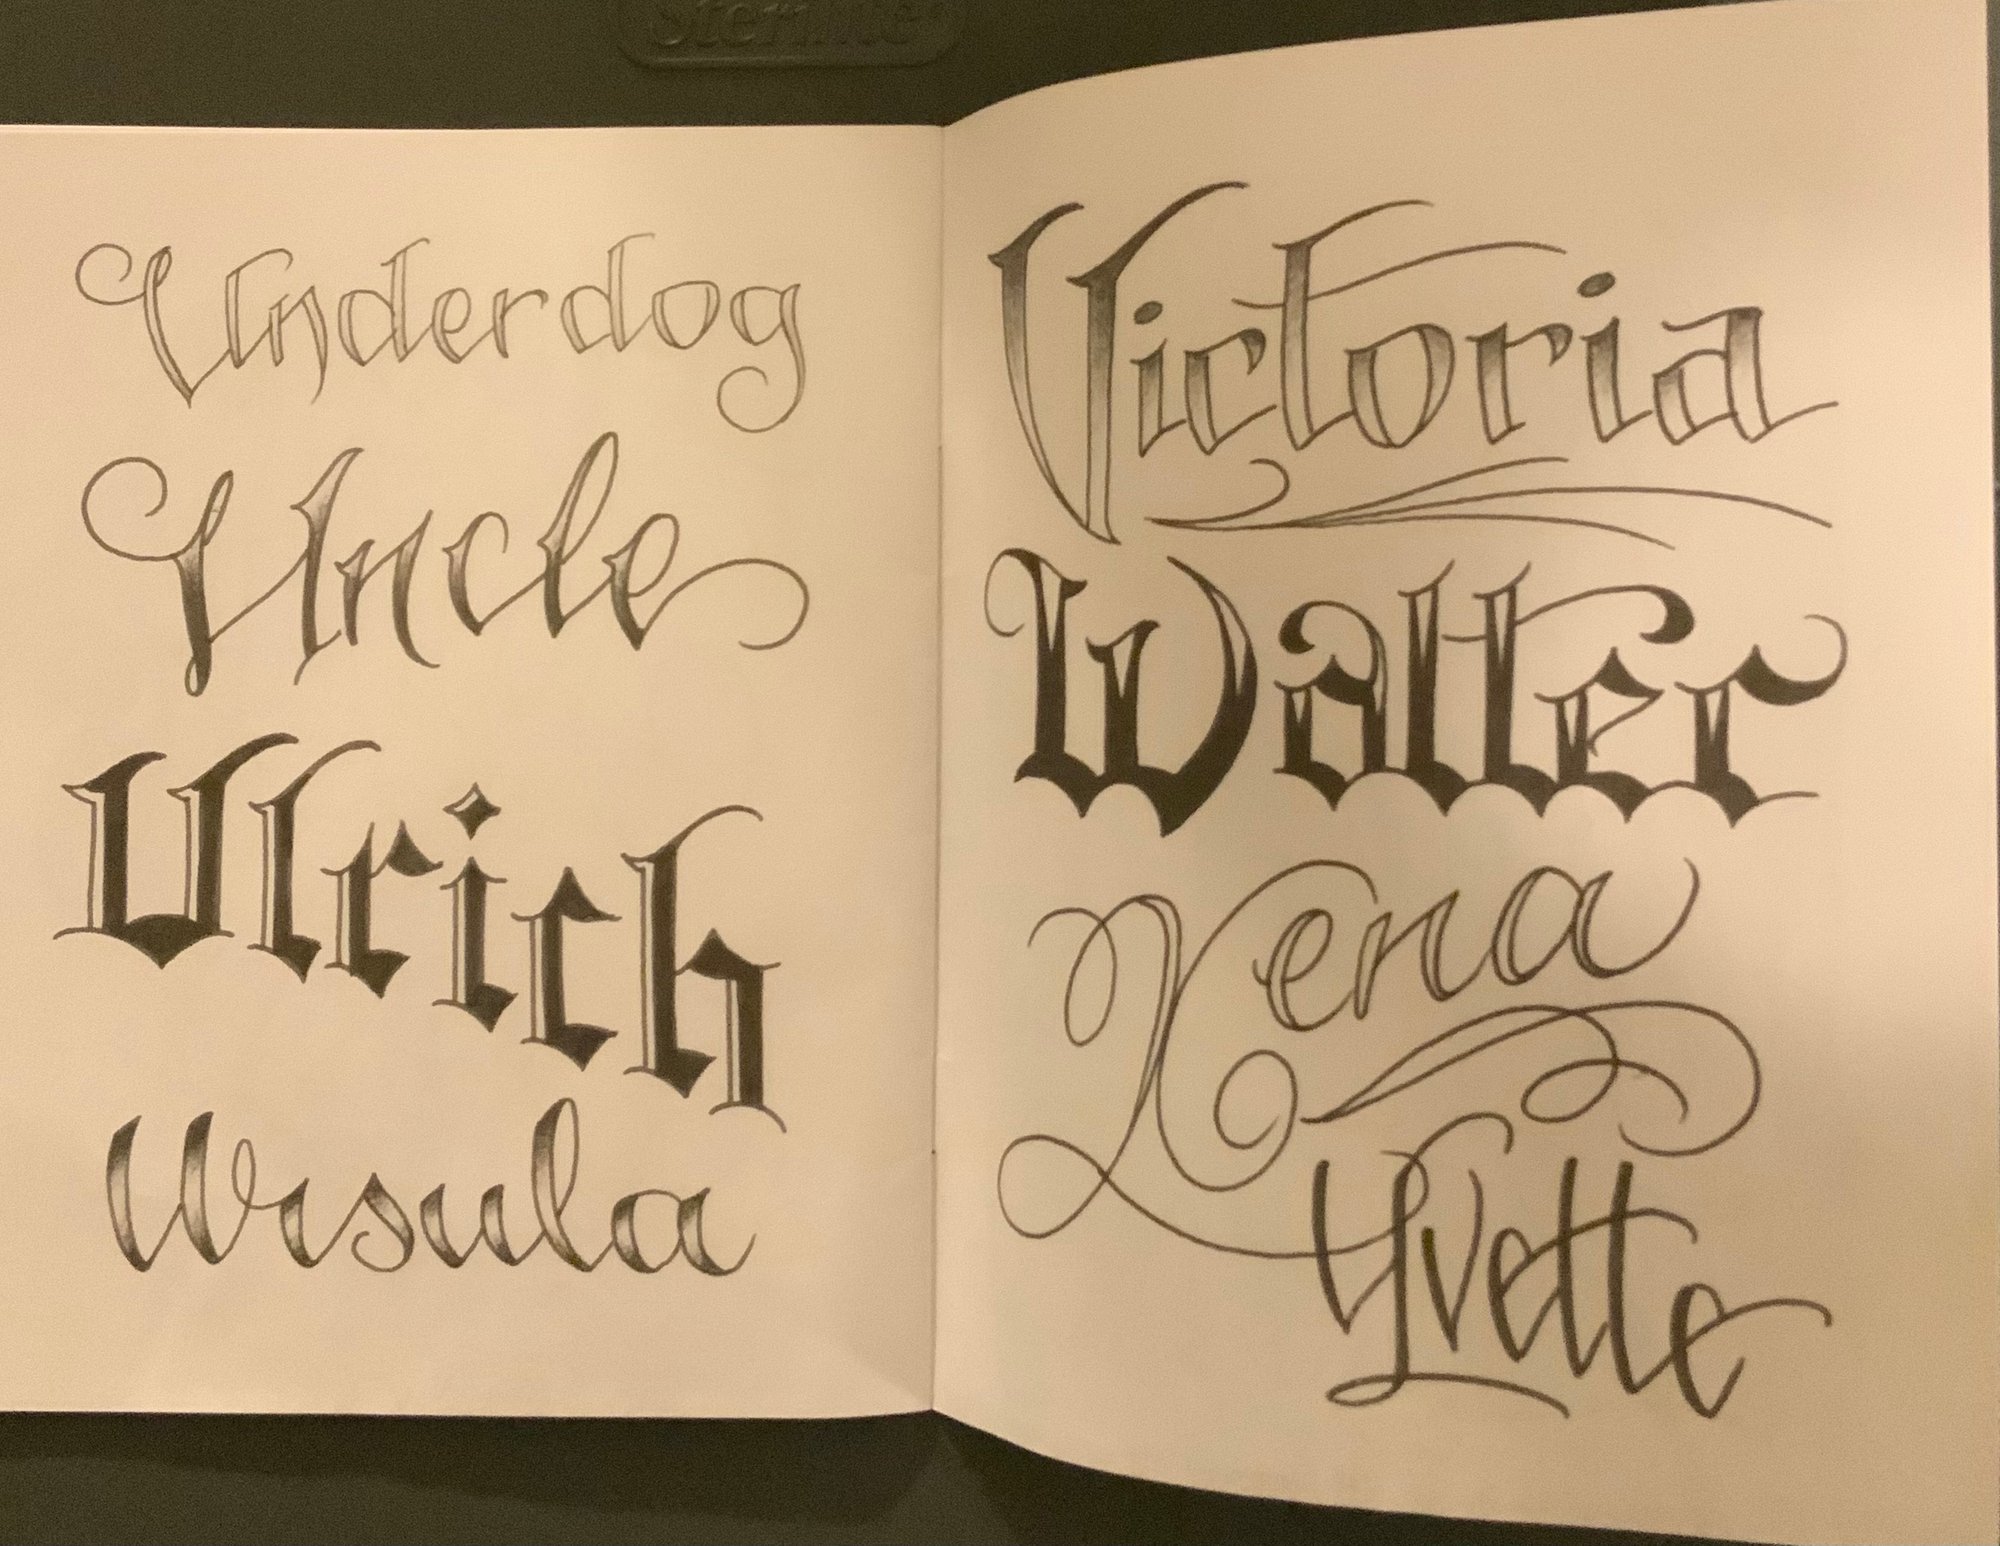 Sterilite
Underdog
Uncle
Ulrich
Ursula
Victoria
Walter
Xena
Yvette